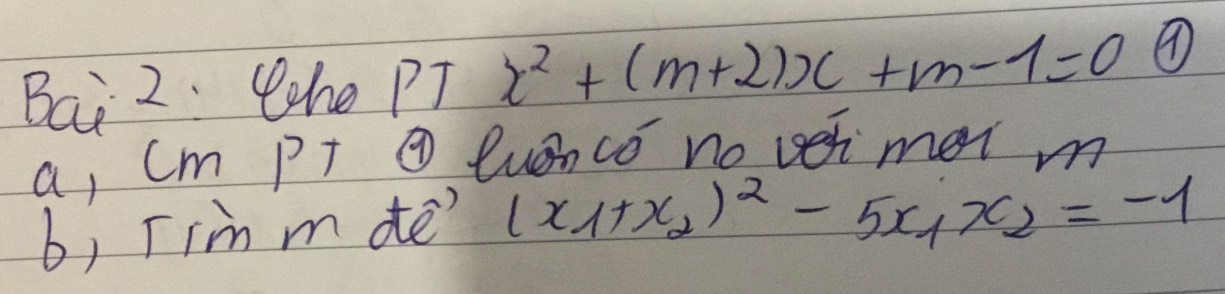 Bài 2: Cho PT x² + (m+2)x + m - 1 = 0 ①
a, Cm PT ① luôn có no với mọi m
b, Tìm m để (x₁+x₂)² - 5x₁x₂ = -1